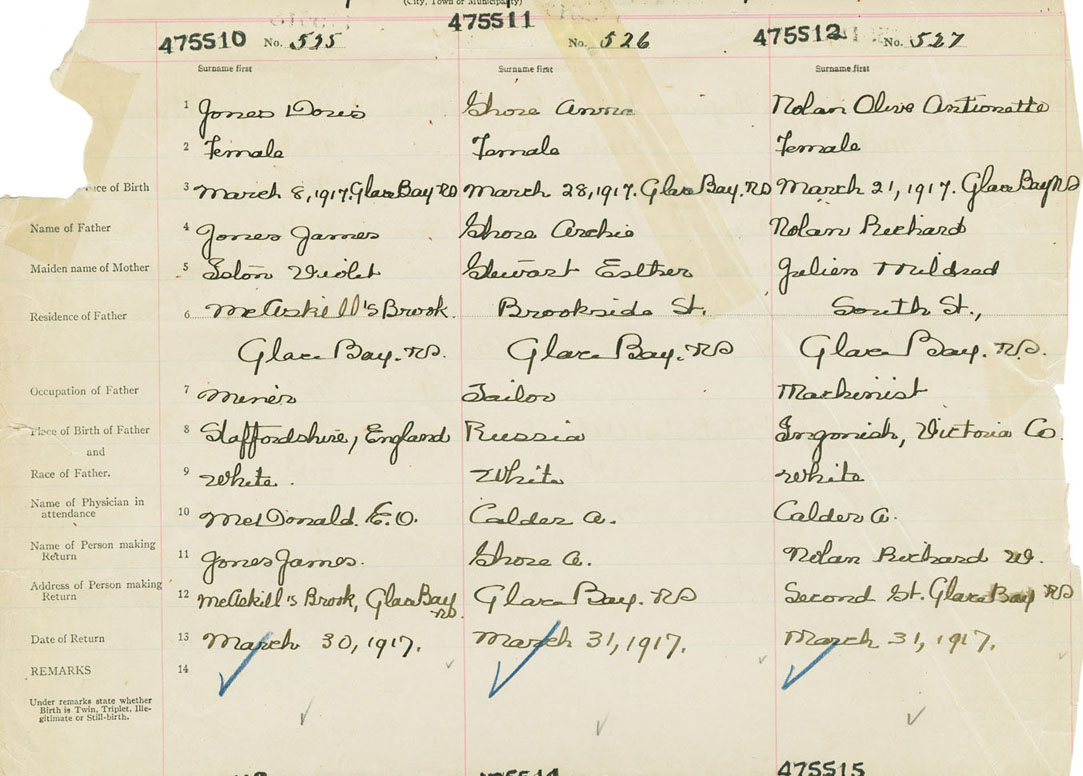 (City, Town or Municipality)
475510 No. 525
475511 No. 526
475512 No. 527
Surname first Surname first Surname first
1 Jones Doris
Shore Anna
Nolan Olive Antionette
2 Female
Female
Female
ace of Birth 3 March 8, 1917. Glace Bay NS
March 28, 1917. Glace Bay. NS
March 21, 1917. Glace Bay NS
Name of Father 4 Jones James
Shore Archie
Nolan Richard
Maiden name of Mother 5 Violet
Stewart Esther
Julien Mildred
Residence of Father 6 McAskill's Brook.
Brookside St.
South St.,
Glace Bay. NS.
Glace Bay. NS
Glace Bay. NS.
Occupation of Father 7 Miner
Tailor
Machinist
Place of Birth of Father 8 Staffordshire, England
Russia
Ingonish, Victoria Co.
and
Race of Father. 9 White.
White
White
Name of Physician in
attendance 10 McDonald. E.O.
Calder A.
Calder A.
Name of Person making
Return 11 Jones James.
Shore A.
Nolan Richard W.
Address of Person making
Return 12 McAskill's Brook, Glace Bay NS.
Glace Bay. NS
Second St. Glace Bay NS
Date of Return 13 March 30, 1917.
March 31, 1917.
March 31, 1917.
REMARKS 14
Under remarks state whether
Birth is Twin, Triplet, Ille-
gitimate or Still-birth.
475514
475515